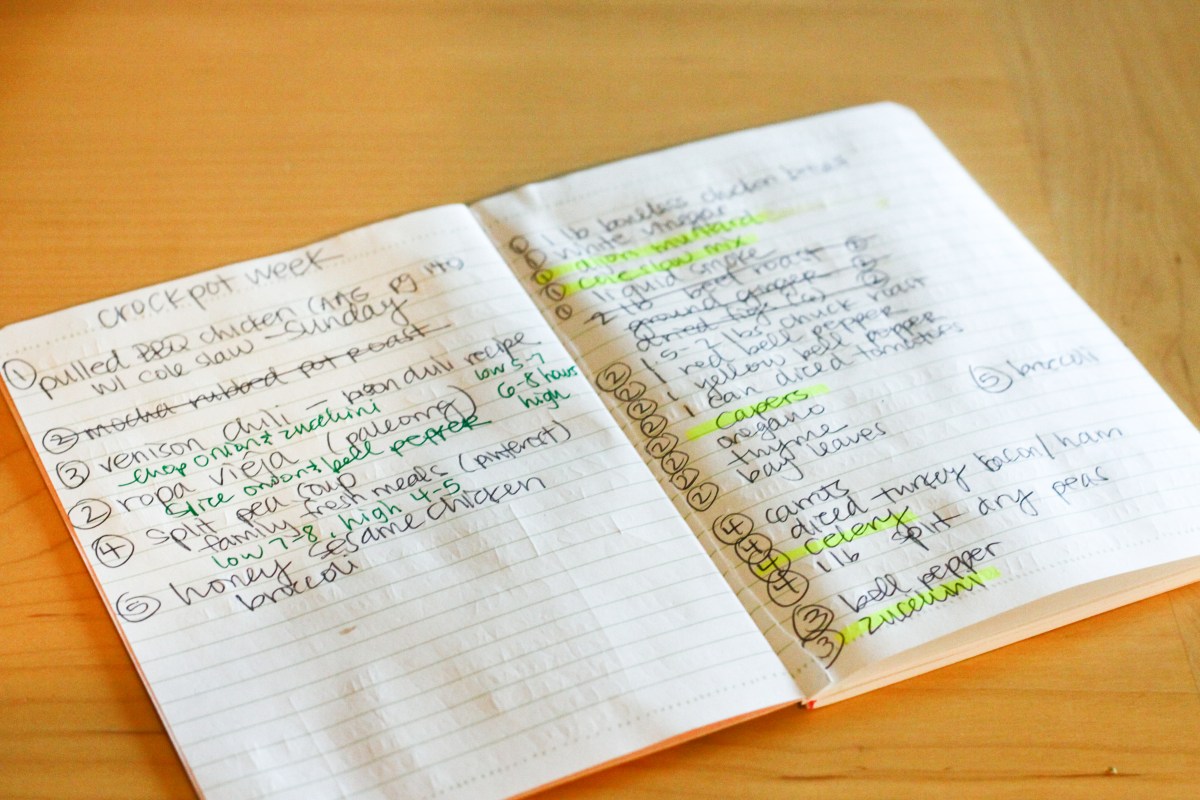 crockpot week
① pulled BBQ chicken (NNG pg 140
w/ cole slaw - Sunday
② mocha rubbed pot roast
③ venison chili - bison chili recipe
chop onion & zucchini
low 5-7
② ropa vieja (paleomg)
6-8 hours
slice onion & bell pepper
high
④ split pea soup
family fresh meals (pinterest)
low 7-8, high 4-5
⑤ honey sesame chicken
broccoli
① 1 lb boneless chicken breast
① white vinegar
① dijon mustard
① coleslaw mix
① liquid smoke
2 lb beef roast ②
ground ginger ②
dried figs ②
② 1.5-2 lbs chuck roast
② 1 red bell pepper
② 1 yellow bell pepper
② 1 can diced tomatoes
② capers
② oregano
⑤ broccoli
② thyme
② bay leaves
④ carrots
④ diced turkey bacon/ham
④ celery
④ 1 lb split dry peas
③ bell pepper
③ zucchini